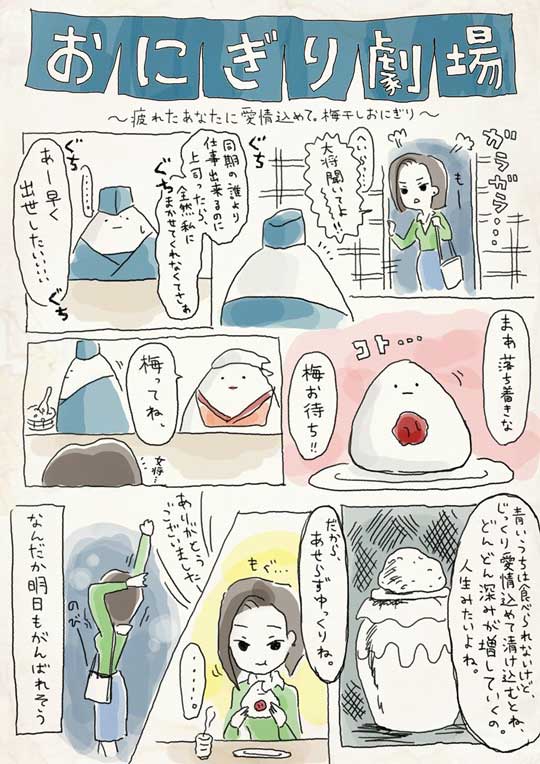 おにぎり劇場
～疲れたあなたに愛情込めて。梅干しおにぎり～
ガラガラ・・・
もー
いらっしゃ・・・
大将聞いてよ!!
同期の誰より
仕事出来るのに
上司ったら、
全然私に
まかせてくれなくてさぁ
ぐち
ぐち
・・・・・・
あー早く
出世したい・・・・
ぐち
ぐち
まあ落ち着きな
コト・・・
梅お待ち!!
梅ってね、
女将・・
青いうちは食べられないけど、
じっくり愛情込めて漬け込むとね、
どんどん深みが増していくの。
人生みたいよね。
だから、
あせらずゆっくりね。
もぐ・・・
・・・・・。
ありがとう
ございました
のび
なんだか明日もがんばれそう